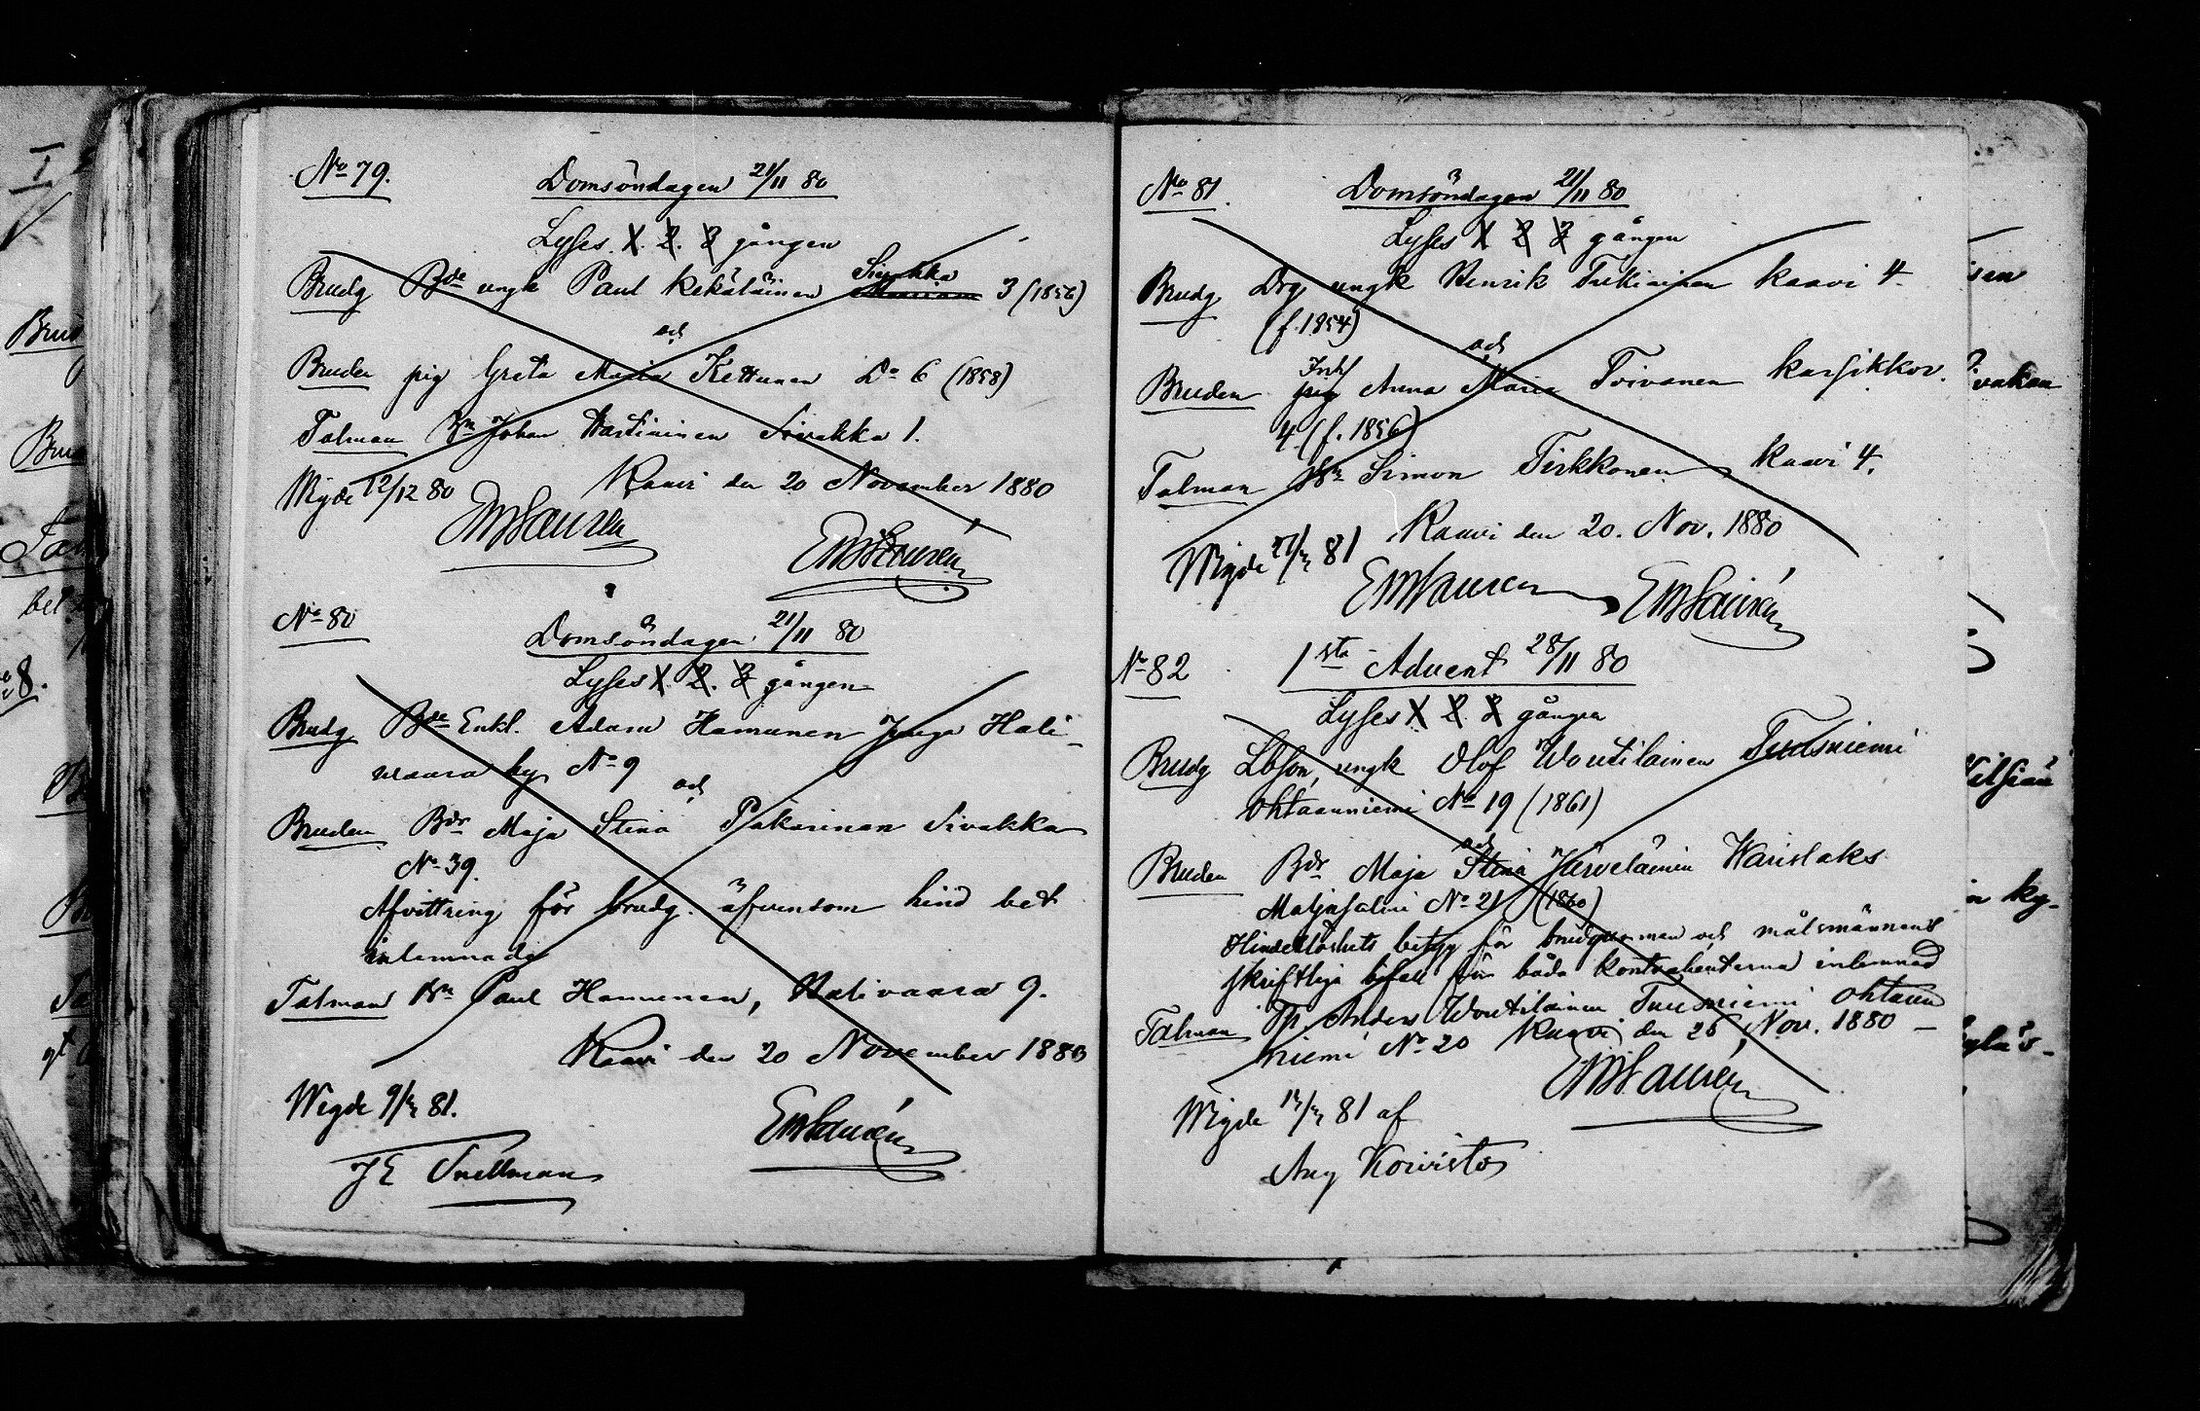 No 79. Domsöndagen 21/11 80
Lyses 1. 2. 3 gången
Brudg Bde ungk Paul Kekäläinen Sivakka 3 (1856)
och
Bruden pig Greta Maria Kettunen Do 6 (1858)
Talman Bn Johan Hartikainen Sivakka 1.
Wigde 12/12 80 Kaavi den 20 November 1880
EWLaurén
EWLaurén
No 80
Domsöndagen 21/11 80
Lyses 1. 2. 3 gången
Brudg Bde Enkl. Adam Hamunen Junga Hali-
vaara by No 9
och
Bruden Bdr Maja Stina Pakarinen Sivakka
No 39.
Afvittring för brudg. äfvensom hind bet
inlemnade
Talman Bn Paul Hamunen, Halivaara 9.
Kaavi den 20 November 1880
Wigde 9/2 81.
EWLaurén
JE Snellman
No 81. Domsöndagen 21/11 80
Lyses 1 2 3 gången
Brudg Drg ungk Henrik Tukiainen Kaavi 4.
(f. 1854)
och
Inh
Bruden pig Anna Maria Toivanen Karsikkov.
4 (f. 1856)
Talman Bn Simon Tirkkonen Kaavi 4.
Kaavi den 20. Nov. 1880
Wigde 81
EWLaurén EWLaurén
No 82 1sta Advent 28/11 80
Lyses 1 2. 3 gången
Brudg Lbson, ungk Olof Woutilainen Tuusniemi
Ohtaanniemi No 19 (1861)
och
Bruden Bdr Maja Stina Hirveläinin Warislaks
Maljasalmi No 21 (1860)
Hinderlöshets betyg för brudgummen och målsmännens
skriftliga bifall för båda kontrahenterna inlemnad
Talman Tp Anders Woutilainen Tuusniemi Ohtaan
niemi No 20 Kaavi den 26 Nov. 1880 —
EWLaurén
Wigde 81 af
Aug Koivisto